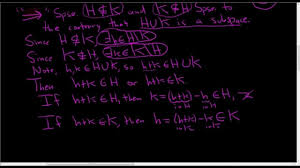 "⇒" Spse. H⊄K and K⊄H Spse. to
the contrary that HUK is a subspace.
Since H⊄K, ∃h∈H\K
Since K⊄H, ∃k∈K\H
Note, h,k∈HUK, so h+k∈HUK
Then h+k∈H or h+k∈K.
If h+k∈H, then k=(h+k)-h∈H,
in H in H
If h+k∈K, then h=(h+k)-k∈K
in K in K